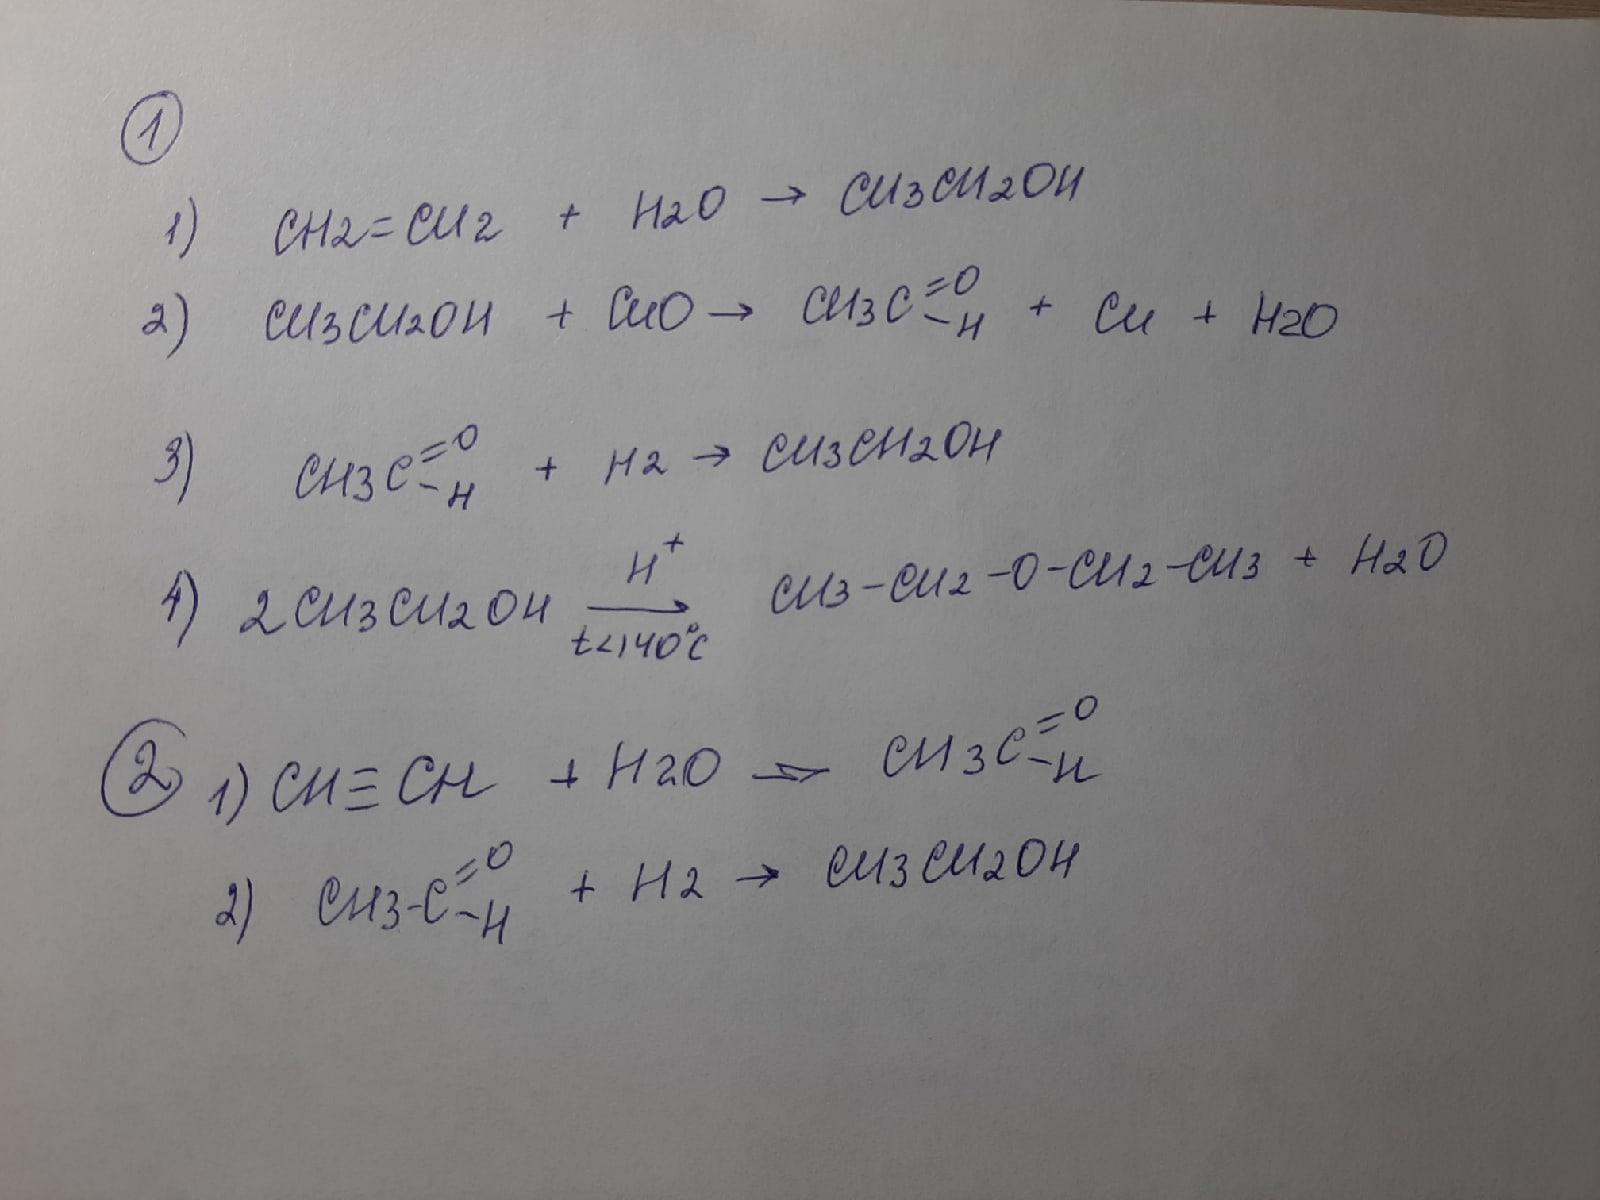 1
1) CH2=CH2 + H2O → CH3CH2OH
2) CH3CH2OH + CuO → CH3C=O-H + Cu + H2O
3) CH3C=O-H + H2 → CH3CH2OH
4) 2CH3CH2OH H+ → t<140°C CH3-CH2-O-CH2-CH3 + H2O
2 1) CH≡CH + H2O → CH3C=O-H
2) CH3-C=O-H + H2 → CH3CH2OH